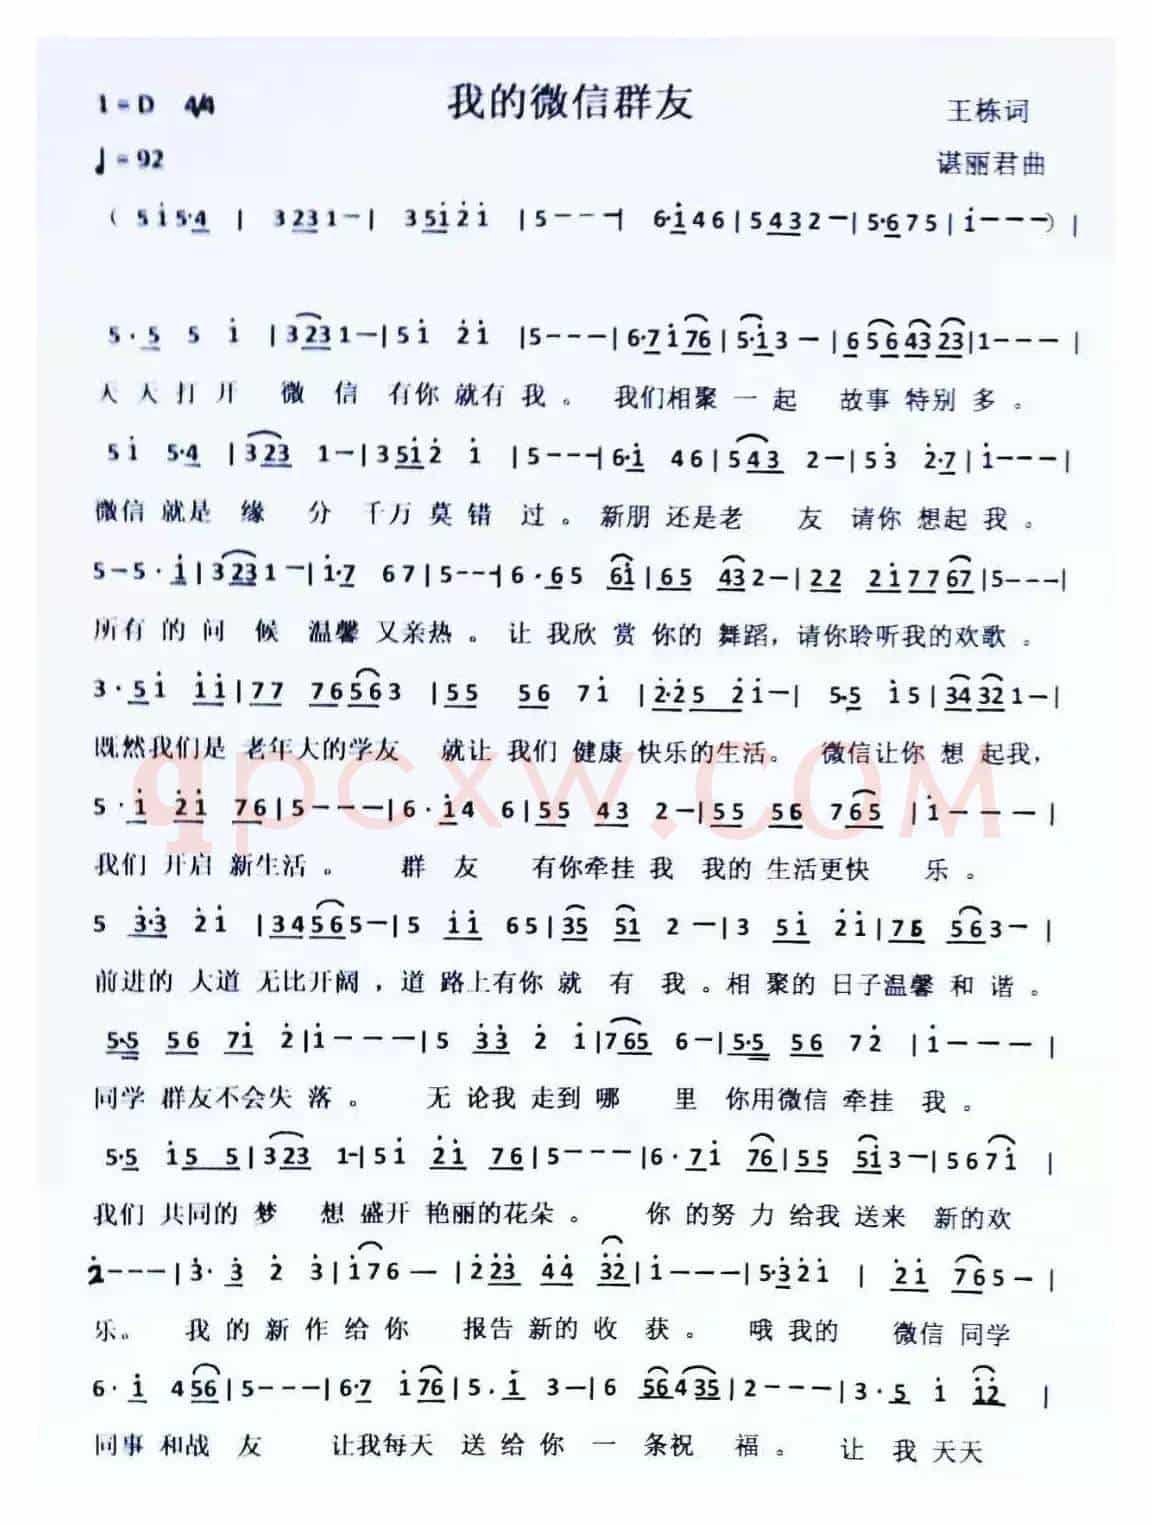 1=D 4/4 我的微信群友 王栋词
♩=92 谌丽君曲
( 5 i̇ 5·4 | 3 23 1 – | 3 5i̇ 2̇ i̇ | 5 – – – | 6·i̇ 4 6 | 5 43 2 – | 5·6 7 5 | i̇ – – – ) |
5·5 5 i̇ | 3 23 1 – | 5 i̇ 2̇ i̇ | 5 – – – | 6·7 i̇ 76 | 5·i̇ 3 – | 6 56 43 23 | 1 – – – |
天天打开 微信 有你就有我。 我们相聚一起 故事特别多。
5 i̇ 5·4 | 3 23 1 – | 3 5i̇ 2̇ i̇ | 5 – – – | 6·i̇ 4 6 | 5 43 2 – | 5 3̇ 2·7 | i̇ – – – |
微信就是缘 分 千万莫错过。新朋还是老 友 请你想起我。
5 – 5·i̇ | 3 23 1 – | i̇·7 6 7 | 5 – – – | 6·65 6i̇ | 65 43 2 – | 22 2i̇ 77 67 | 5 – – – |
所有的问候 温馨又亲热。让我欣赏你的舞蹈，请你聆听我的欢歌。
3·5 i̇ i̇i̇ | 77 76 56 3 | 55 56 7 i̇ | 2̇·2̇ 5 2̇ i̇ – | 5·5 i̇ 5 | 34 32 1 – |
既然我们是老年大的学友 就让我们健康快乐的生活。 微信让你想起我，
5·i̇ 2̇i̇ 76 | 5 – – – | 6·i̇ 4 6 | 55 43 2 – | 55 56 7 65 | i̇ – – – |
我们开启新生活。 群友 有你牵挂我 我的生活更快 乐。
5 3̇·3̇ 2̇ i̇ | 34 56 5 – | 5 i̇i̇ 6 5 | 35 51 2 – | 3 5i̇ 2̇i̇ | 76 56 3 – |
前进的大道无比开阔，道路上有你就有我。相聚的日子温馨和谐。
5·5 56 7i̇ 2̇ | i̇ – – – | 5 3̇3̇ 2̇ i̇ | 7 65 6 – | 5·5 56 7 2̇ | i̇ – – – |
同学群友不会失落。 无论我走到哪 里 你用微信牵挂我。
5·5 i̇5 5 | 3 23 1 – | 5 i̇ 2̇i̇ 76 | 5 – – – | 6·7i̇ 76 | 55 5i̇ 3 – | 5 6 7 i̇ |
我们共同的梦 想盛开艳丽的花朵。 你的努力给我送来 新的欢
2̇ – – – | 3̇·3̇ 2̇ 3̇ | i̇ 7 6 – | 2̇ 2̇3̇ 4̇4̇ 3̇2̇ | i̇ – – – | 5·3̇ 2̇ i̇ | 2̇i̇ 76 5 – |
乐。 我的新作给你 报告新的收获。 哦我的 微信同学
6·i̇ 4 56 | 5 – – – | 6·7 i̇ 76 | 5·i̇ 3 – | 6 56 4 35 | 2 – – – | 3·5 i̇ i̇2̇ |
同事和战友 让我每天送给你一条祝 福。 让我天天
qpcxw.COM